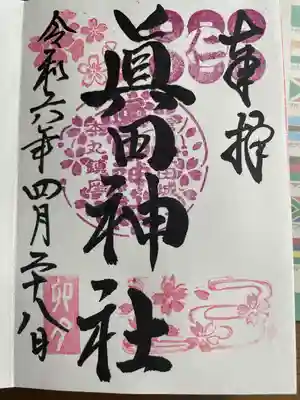 奉拝
眞田神社
令和六年四月二十八日
卯月